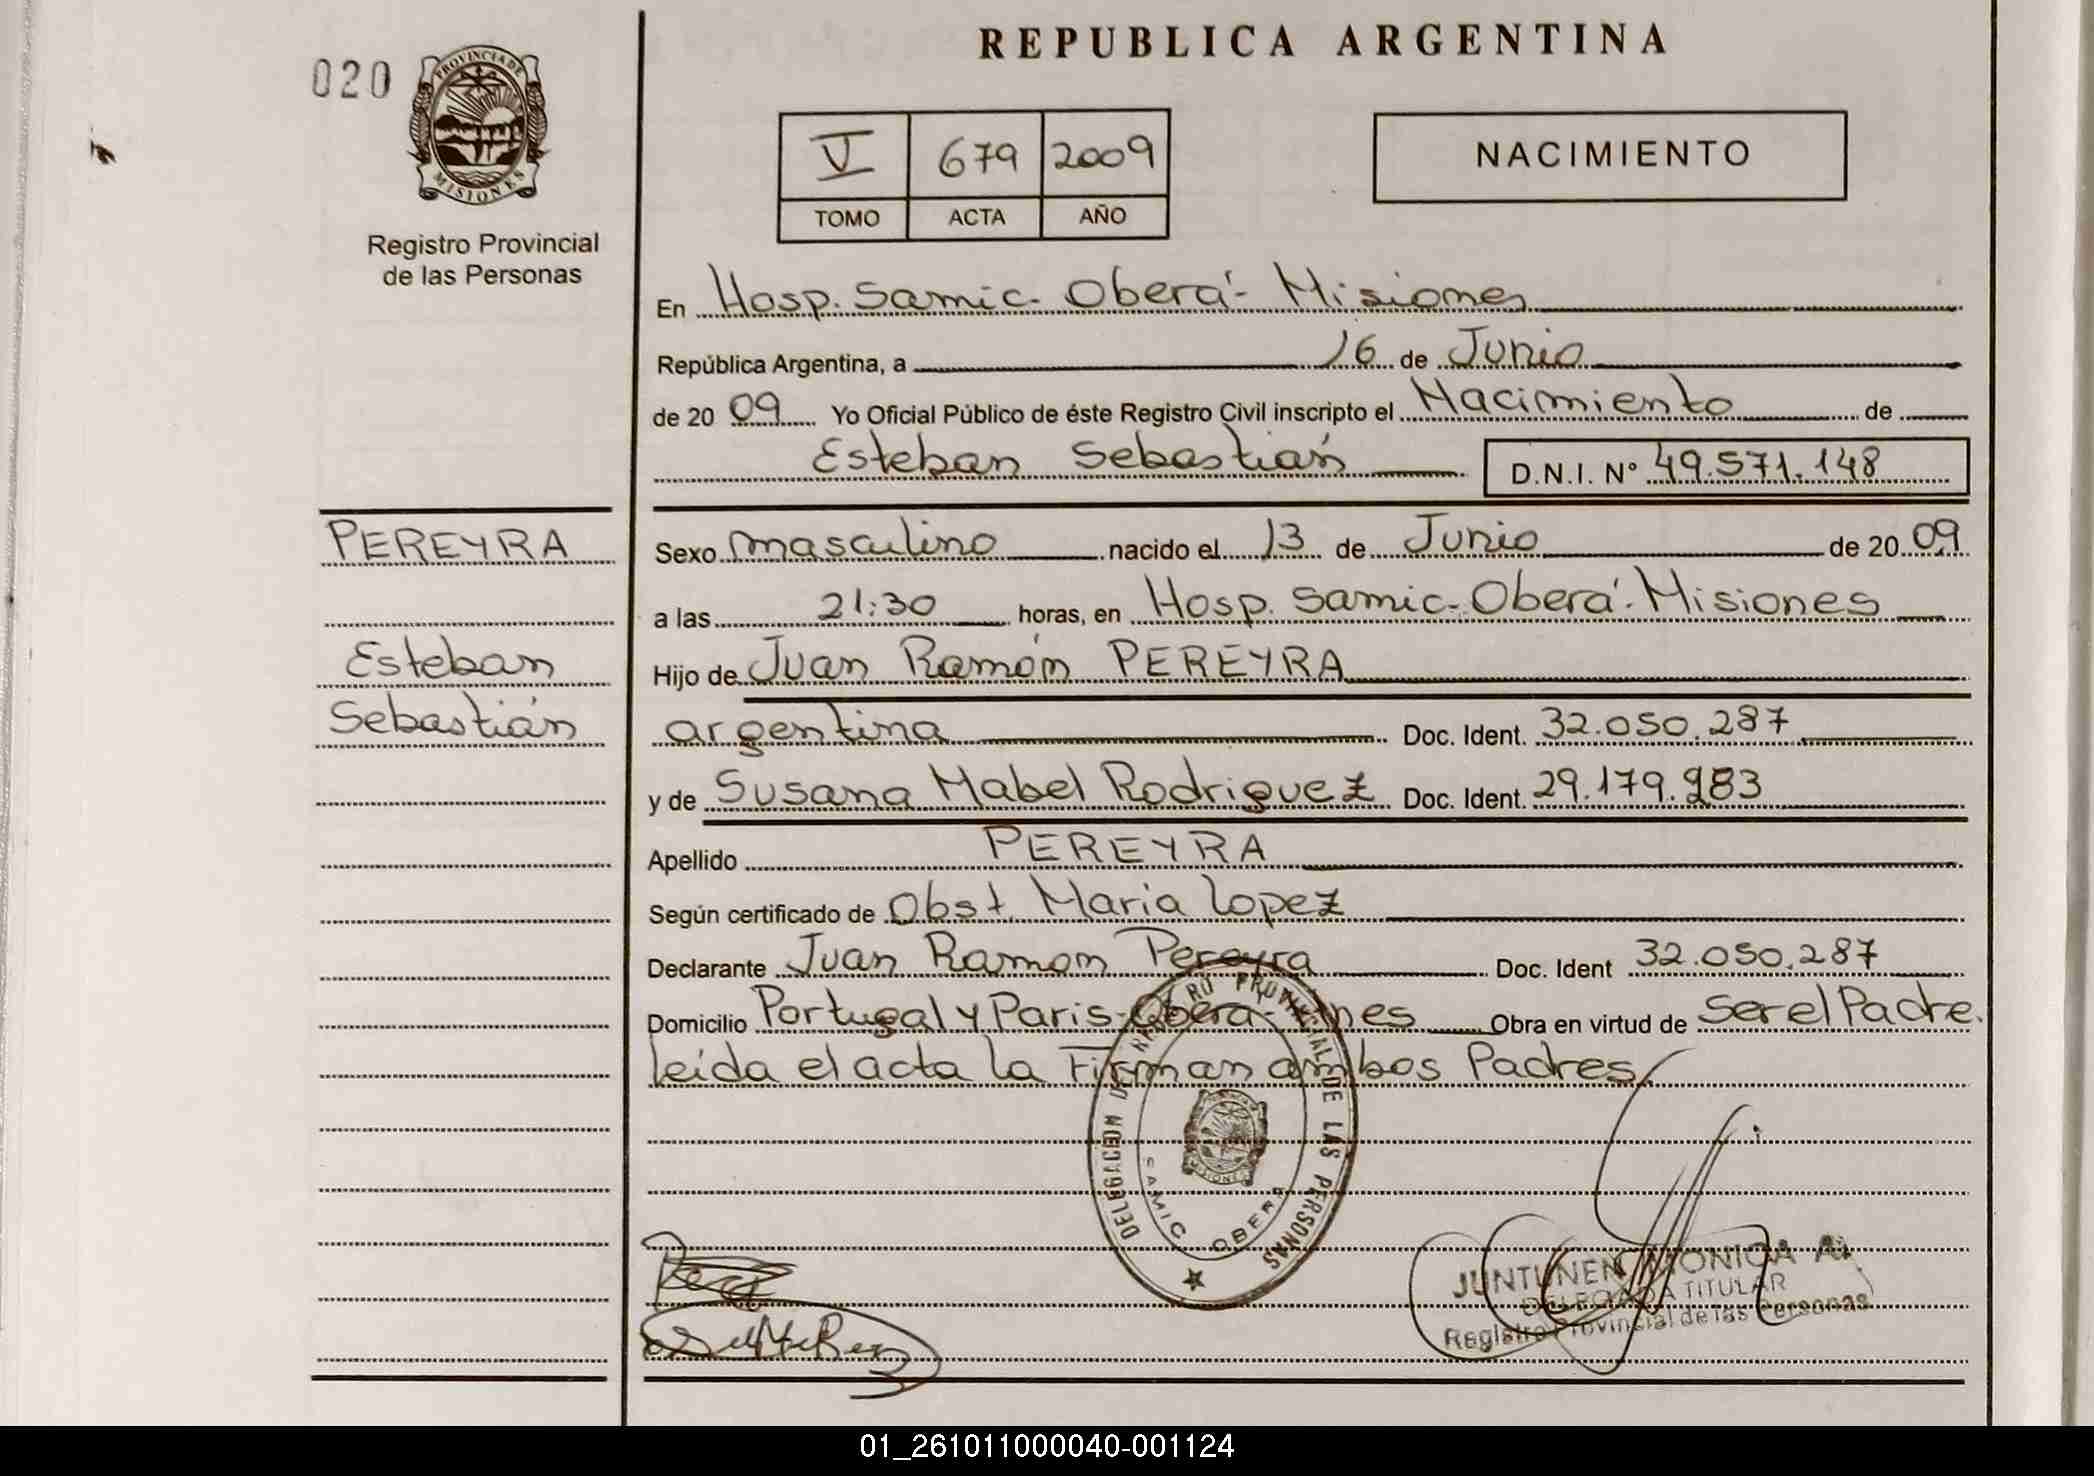 REPUBLICA ARGENTINA
020
PROVINCIA DE
MISIONES
Registro Provincial
de las Personas
V 679 2009
TOMO ACTA AÑO
NACIMIENTO
En Hosp. Samic. Oberá - Misiones
República Argentina, a 16 de Junio
de 2009 Yo Oficial Público de éste Registro Civil inscripto el Nacimiento de
Esteban Sebastián D.N.I. Nº 49.571.148
PEREYRA
Sexo masculino nacido el 13 de Junio de 2009
a las 21:30 horas, en Hosp. Samic. Oberá. Misiones
Esteban
Hijo de Juan Ramón PEREYRA
Sebastián
argentina Doc. Ident. 32.050.287
y de Susana Mabel Rodriguez Doc. Ident. 29.179.983
Apellido PEREYRA
Según certificado de Obst. Maria Lopez
Declarante Juan Ramon Pereyra Doc. Ident 32.050.287
Domicilio Portugal y Paris - Oberá - Mnes Obra en virtud de Ser el Padre.
leída el acta la Firman ambos Padres
DELEGACION DEL REGISTRO PROVINCIAL DE LAS PERSONAS
MISIONES
SAMIC OBERA
JUNTUNEN MONICA A.
DELEGADA TITULAR
Registro Provincial de las Personas
01_261011000040-001124